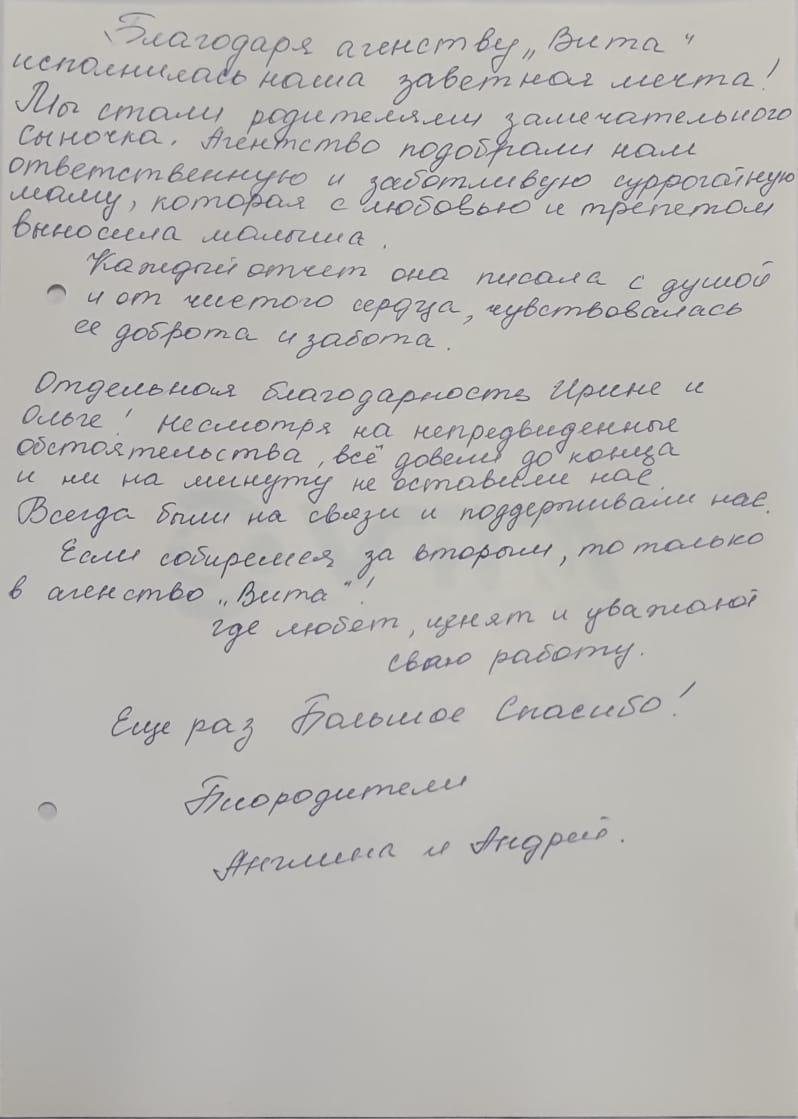 Благодаря агенству „Вита"
исполнилась наша заветная мечта!
Мы стали родителями замечательного
сыночка. Агентство подобрали нам
ответственную и заботливую суррогатную
маму, которая с любовью и трепетом
выносила малыша.
Каждый отчет она писала с душой
и от чистого сердца, чувствовалась
ее доброта и забота.
Отдельная благодарность Ирине и
Ольге! Несмотря на непредвиденные
обстоятельства, всё довели до конца
и ни на минуту не оставили нас.
Всегда были на связи и поддерживали нас.
Если собиремся за вторым, то только
в агенство „Вита"!
где любят, ценят и уважают
сваю работу.
Еще раз Большое Спасибо!
Биородители
и Андрей.